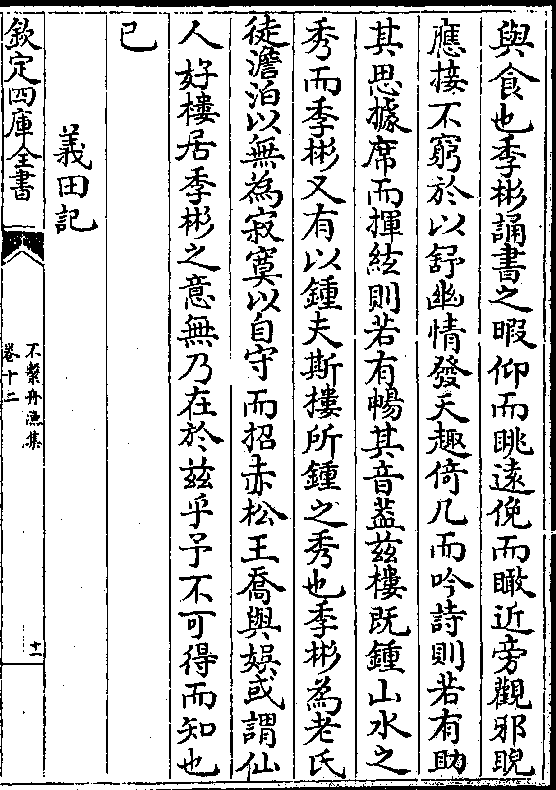 與食也季彬誦書之暇仰而眺遠俛而瞰近旁觀邪睨
應接不窮於以舒幽情發天趣倚几而吟詩則若有助
其思據席而揮絃則若有暢其音蓋兹樓既鍾山水之
秀而季彬又有以鍾夫斯樓所鍾之秀也季彬為老氏
徒澹泊以無為寂寞以自守而招赤松王喬與娱或謂仙
人好樓居季彬之意無乃在於兹乎予不可得而知也
已
義田記
欽定四庫全書
不繫舟漁集
卷十二
十一